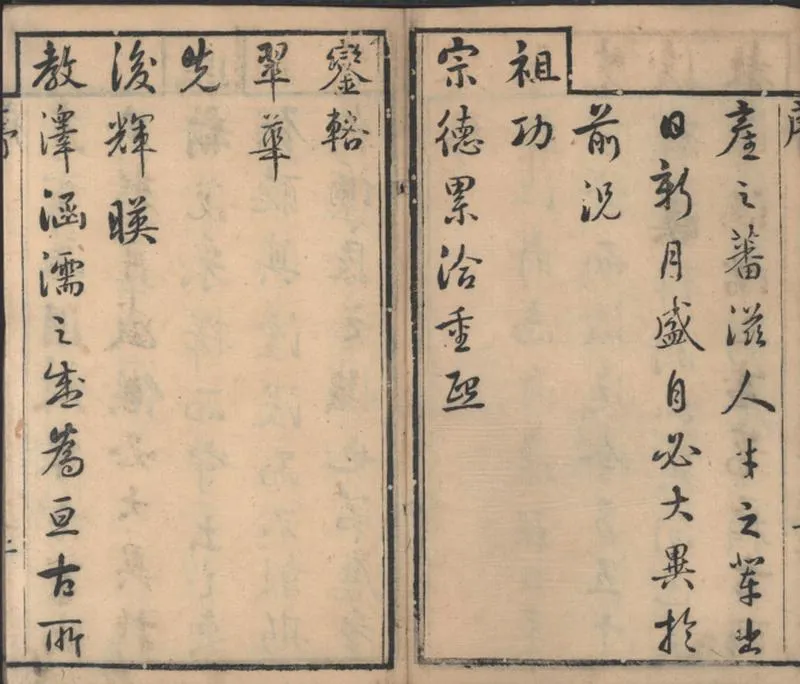 產之蕃滋人才之輩出
日新月盛自必大異於
前況
祖功
宗德累洽重熙
鑾輅
翠華
先
後輝暎
教澤涵濡之盛為亘古所